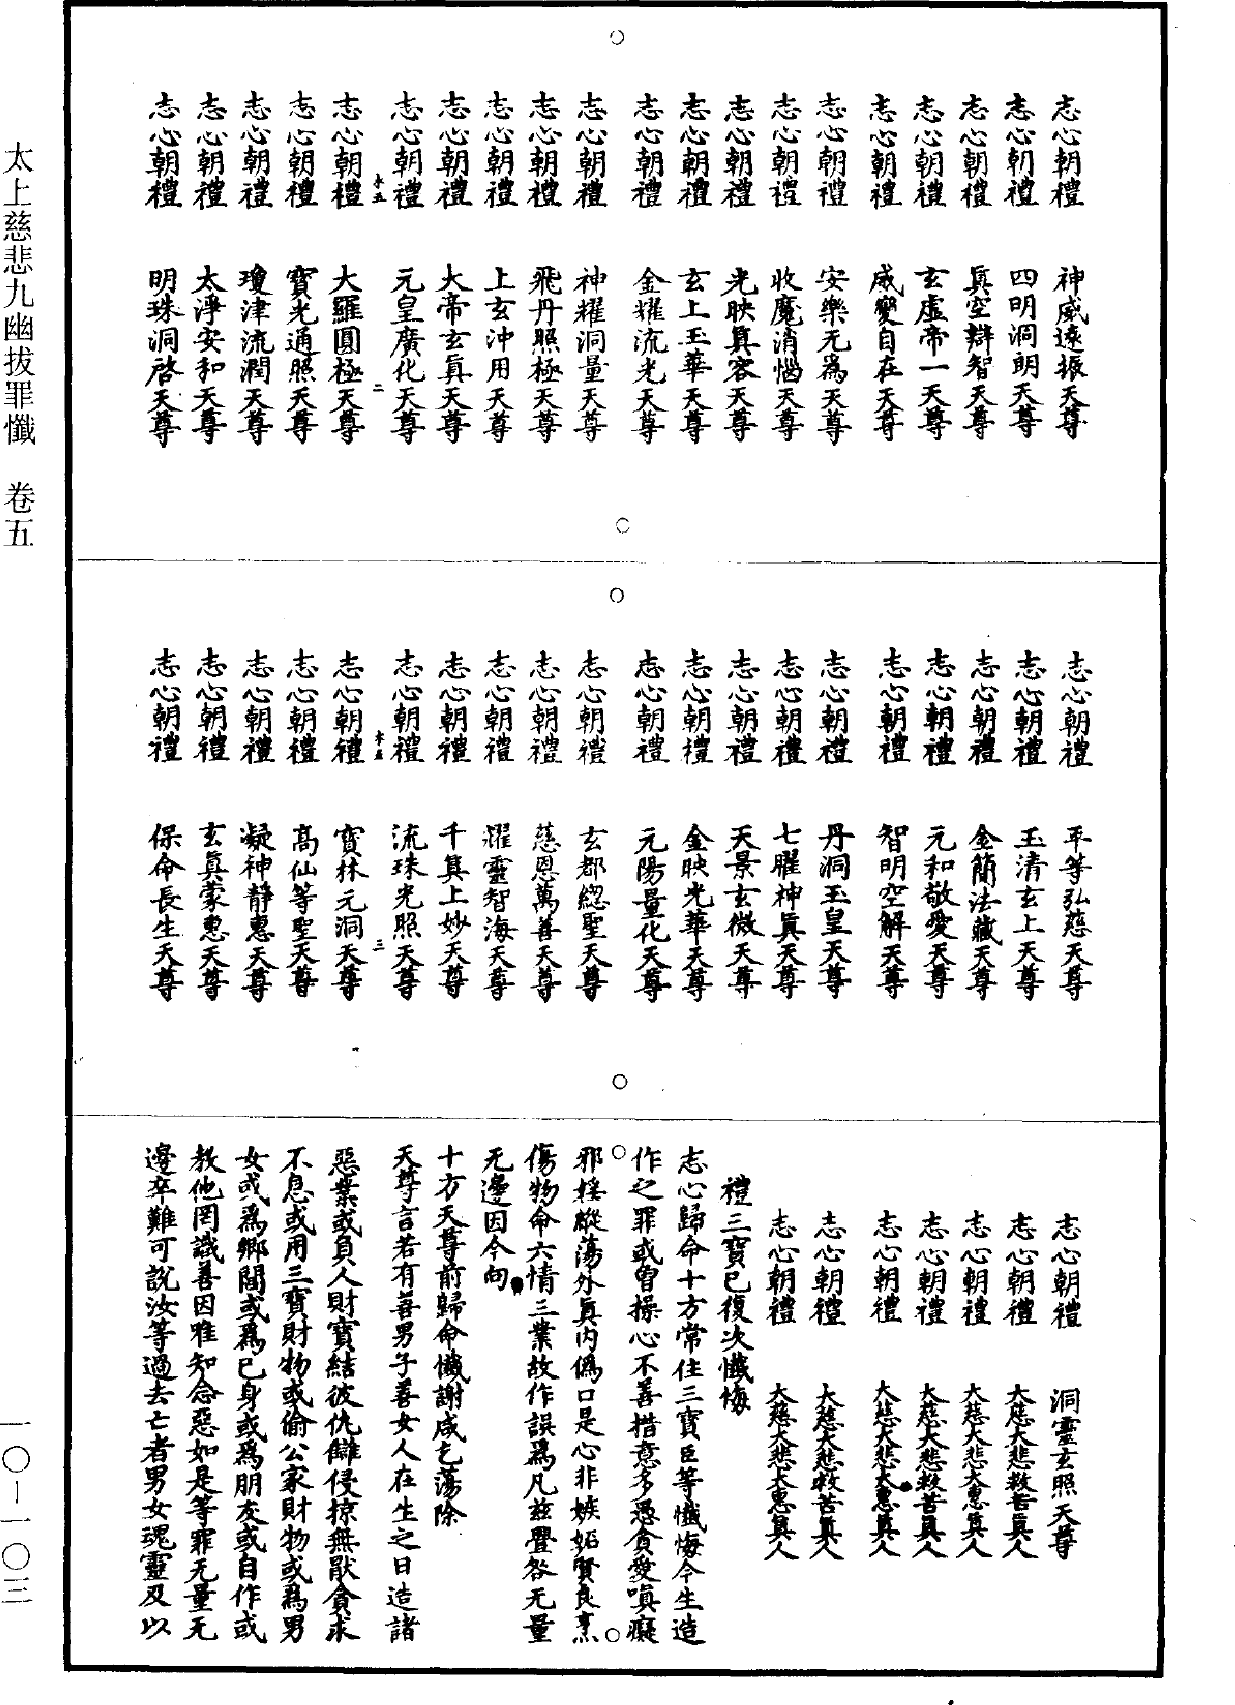 太上慈悲九幽拔罪懺　卷五
志心朝禮　神威遠振天尊
志心朝禮　四明洞朗天尊
志心朝禮　真空辯智天尊
志心朝禮　玄虛帝一天尊
志心朝禮　威變自在天尊
志心朝禮　安樂无為天尊
志心朝禮　收魔消惱天尊
志心朝禮　光映真容天尊
志心朝禮　玄上玉華天尊
志心朝禮　金耀流光天尊
志心朝禮　神耀洞量天尊
志心朝禮　飛丹照極天尊
志心朝禮　上玄沖用天尊
志心朝禮　大帝玄真天尊
志心朝禮　元皇廣化天尊
二
志心朝禮　大羅圓極天尊
志心朝禮　寶光通照天尊
志心朝禮　瓊津流潤天尊
志心朝禮　太淨安和天尊
志心朝禮　明珠洞啓天尊
志心朝禮　平等弘慈天尊
志心朝禮　玉清玄上天尊
志心朝禮　金簡法藏天尊
志心朝禮　元和敬愛天尊
志心朝禮　智明空解天尊
志心朝禮　丹洞玉皇天尊
志心朝禮　七曜神真天尊
志心朝禮　天景玄微天尊
志心朝禮　金映光華天尊
志心朝禮　元陽量化天尊
志心朝禮　玄都總聖天尊
志心朝禮　慈恩萬善天尊
志心朝禮　耀靈智海天尊
志心朝禮　千真上妙天尊
志心朝禮　流珠光照天尊
三
志心朝禮　寶林元洞天尊
志心朝禮　高仙等聖天尊
志心朝禮　凝神靜惠天尊
志心朝禮　玄真蒙惠天尊
志心朝禮　保命長生天尊
志心朝禮　洞靈玄照天尊
志心朝禮　大慈大悲救苦真人
志心朝禮　大慈大悲大惠真人
志心朝禮　大慈大悲救苦真人
志心朝禮　大慈大悲大惠真人
志心朝禮　大慈大悲救苦真人
志心朝禮　大慈大悲大惠真人
禮三寶已復次懺悔
志心歸命十方常住三寶臣等懺悔今生造
作之罪或曾操心不善措意多愚貪愛嗔癡
邪婬縱蕩外真內偽口是心非嫉妬賢良烹
傷物命六情三業故作誤為凡茲舋咎无量
无邊因今向
十方天尊前歸命懺謝咸乞蕩除
天尊言若有善男子善女人在生之日造諸
惡業或負人財寶結彼仇讎侵掠無猒貪求
不息或用三寶財物或偷公家財物或為男
女或為鄉閭或為己身或為朋友或自作或
教他罔識善因唯知念惡如是等罪无量无
邊卒難可說汝等過去亡者男女魂靈及以
一〇—一〇三